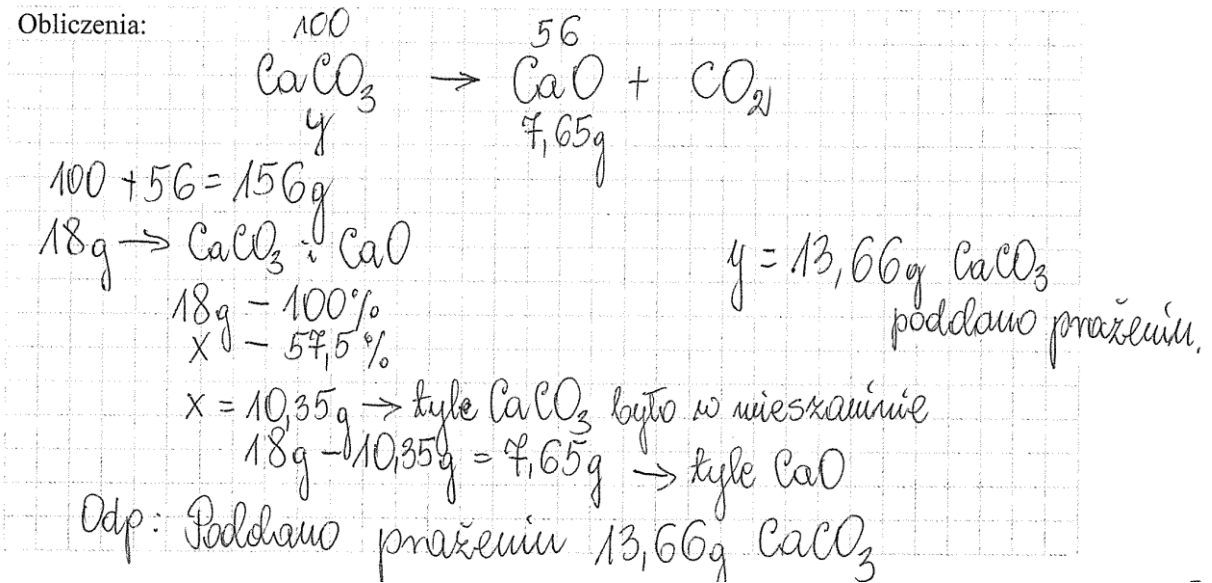 Obliczenia:
100 56
CaCO₃ → CaO + CO₂
y 7,65g
100 + 56 = 156g
18g → CaCO₃ i CaO
18g – 100%
x – 57,5%
y = 13,66g CaCO₃
poddano prażeniu.
x = 10,35g → tyle CaCO₃ było w mieszaninie
18g – 10,35g = 7,65g → tyle CaO
Odp: Poddano prażeniu 13,66g CaCO₃